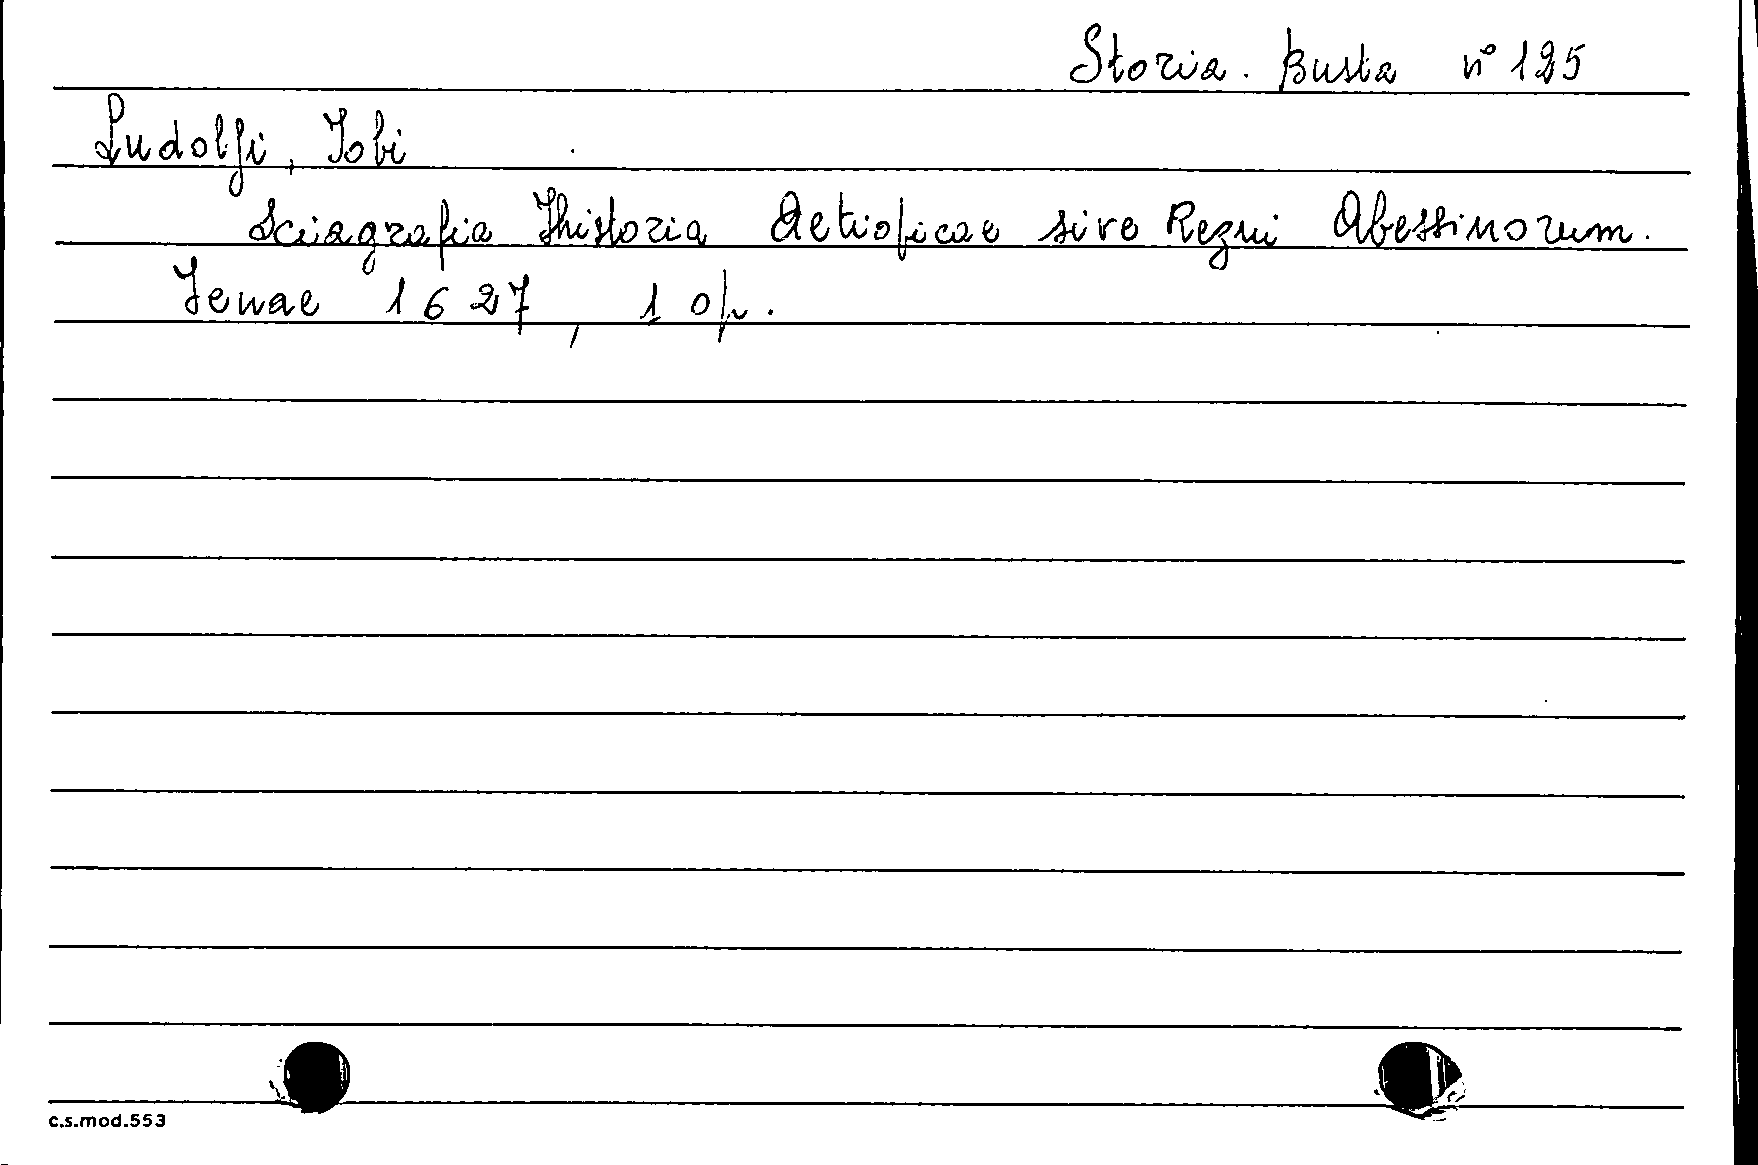 Storia. Busta n° 125
Ludolfi, Iobi
Sciagrafia Ihistoria Aetiopicae sive Regni Abessinorum.
Ienae 1627, 1 op.
c.s.mod.553